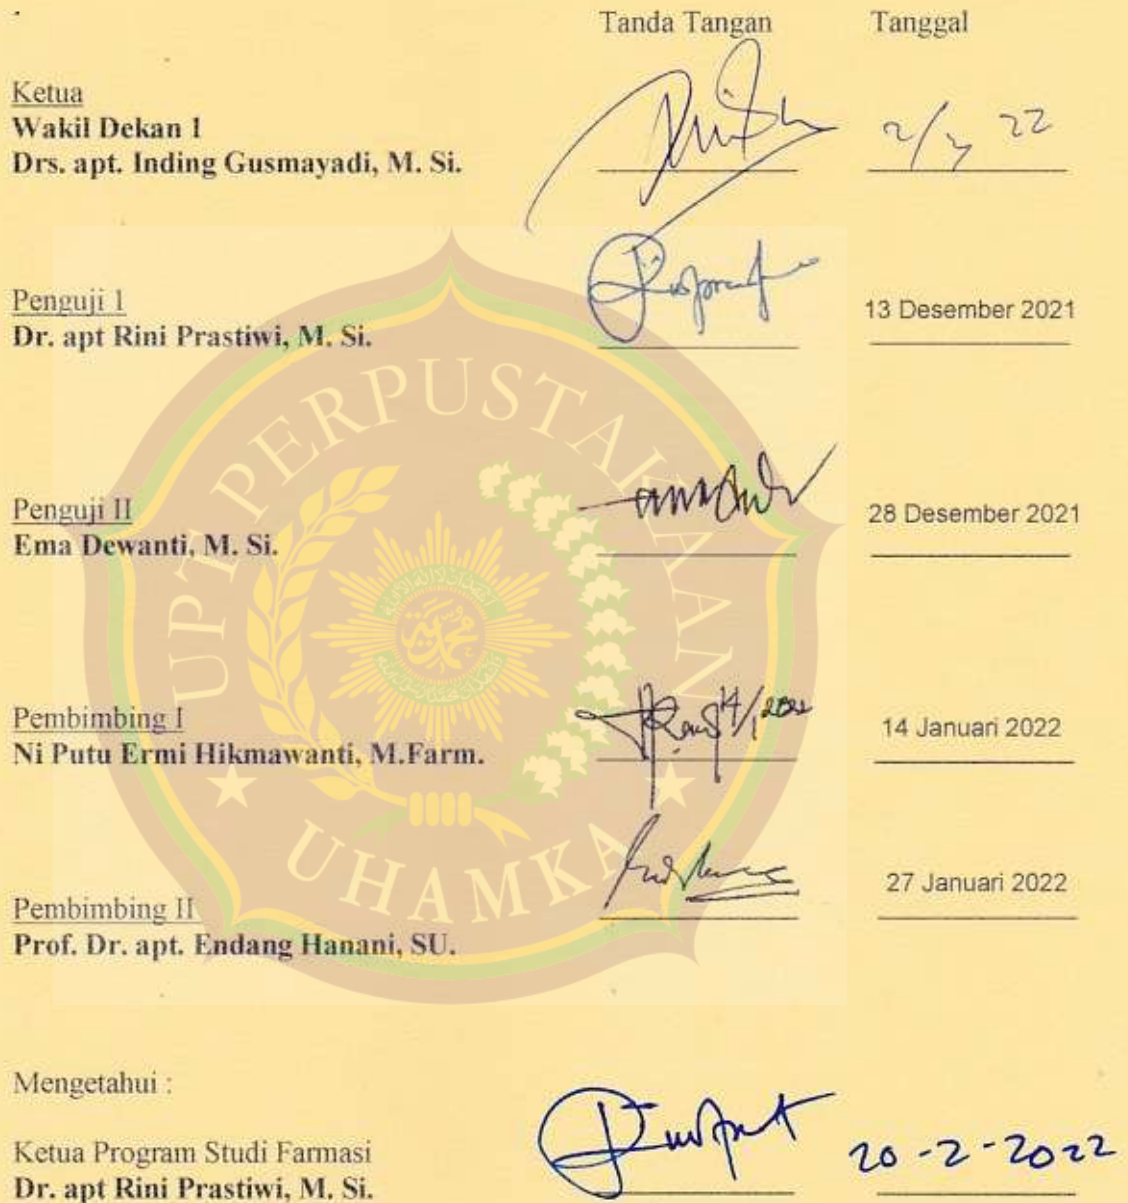 Tanda Tangan Tanggal
Ketua
Wakil Dekan 1
Drs. apt. Inding Gusmayadi, M. Si.
Penguji 1
Dr. apt Rini Prastiwi, M. Si.
13 Desember 2021
Penguji II
Ema Dewanti, M. Si.
28 Desember 2021
Pembimbing I
Ni Putu Ermi Hikmawanti, M.Farm.
14/1 2022
14 Januari 2022
Pembimbing II
Prof. Dr. apt. Endang Hanani, SU.
27 Januari 2022
Mengetahui :
Ketua Program Studi Farmasi
Dr. apt Rini Prastiwi, M. Si.
20-2-2022
UPT PERPUSTAKAAN
UHAMKA